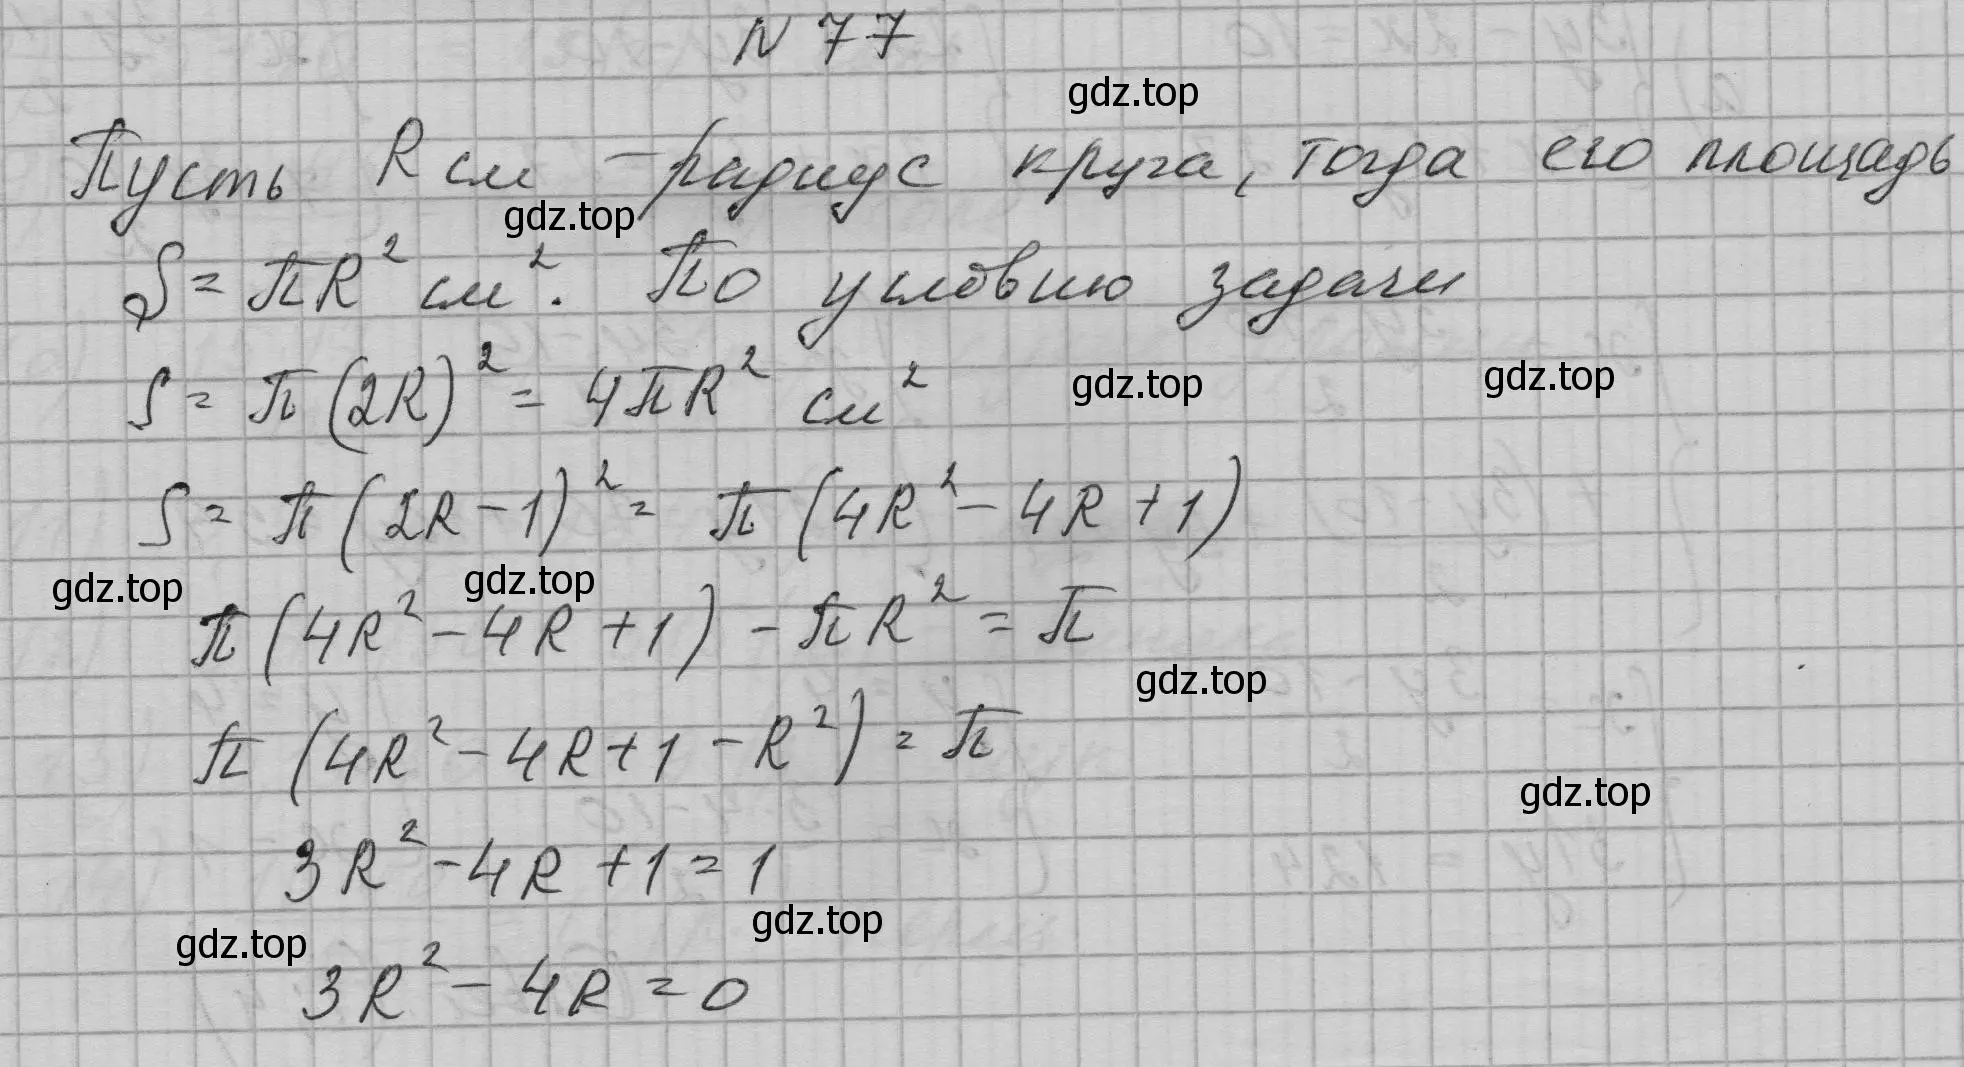 N 77
gdz.top
Пусть R см – радиус круга, тогда его площадь
gdz.top
S = πR² см². По условию задачи
S = π(2R)² = 4πR² см²
gdz.top gdz.top
S = π(2R - 1)² = π(4R² - 4R + 1)
gdz.top gdz.top
π(4R² - 4R + 1) - πR² = π
gdz.top
π(4R² - 4R + 1 - R²) = π
gdz.top
3R² - 4R + 1 = 1
gdz.top gdz.top
3R² - 4R = 0